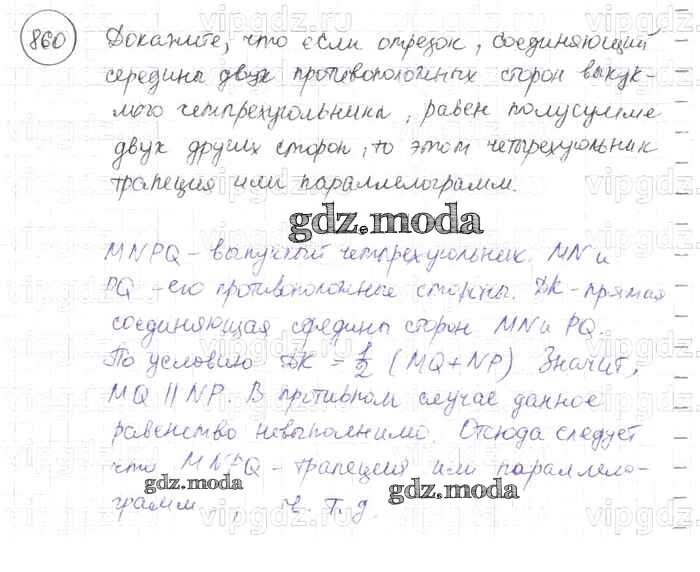 860 Докажите, что если отрезок, соединяющий
середины двух противоположных сторон выпук-
лого четырехугольника, равен полусумме
двух других сторон, то этот четырехугольник
трапеция или параллелограмм.
gdz.moda
MNPQ - выпуклый четырехугольник. MN и
PQ - его противоположные стороны. DK - прямая
соединяющая середины сторон MN и PQ.
По условию DK = 1/2 (MQ+NP) Значит,
MQ || NP. В противном случае данное
равенство невыполнимо. Отсюда следует
что MNPQ - трапеция или параллело-
gdz.moda gdz.moda
грамм. , ч. т. д.